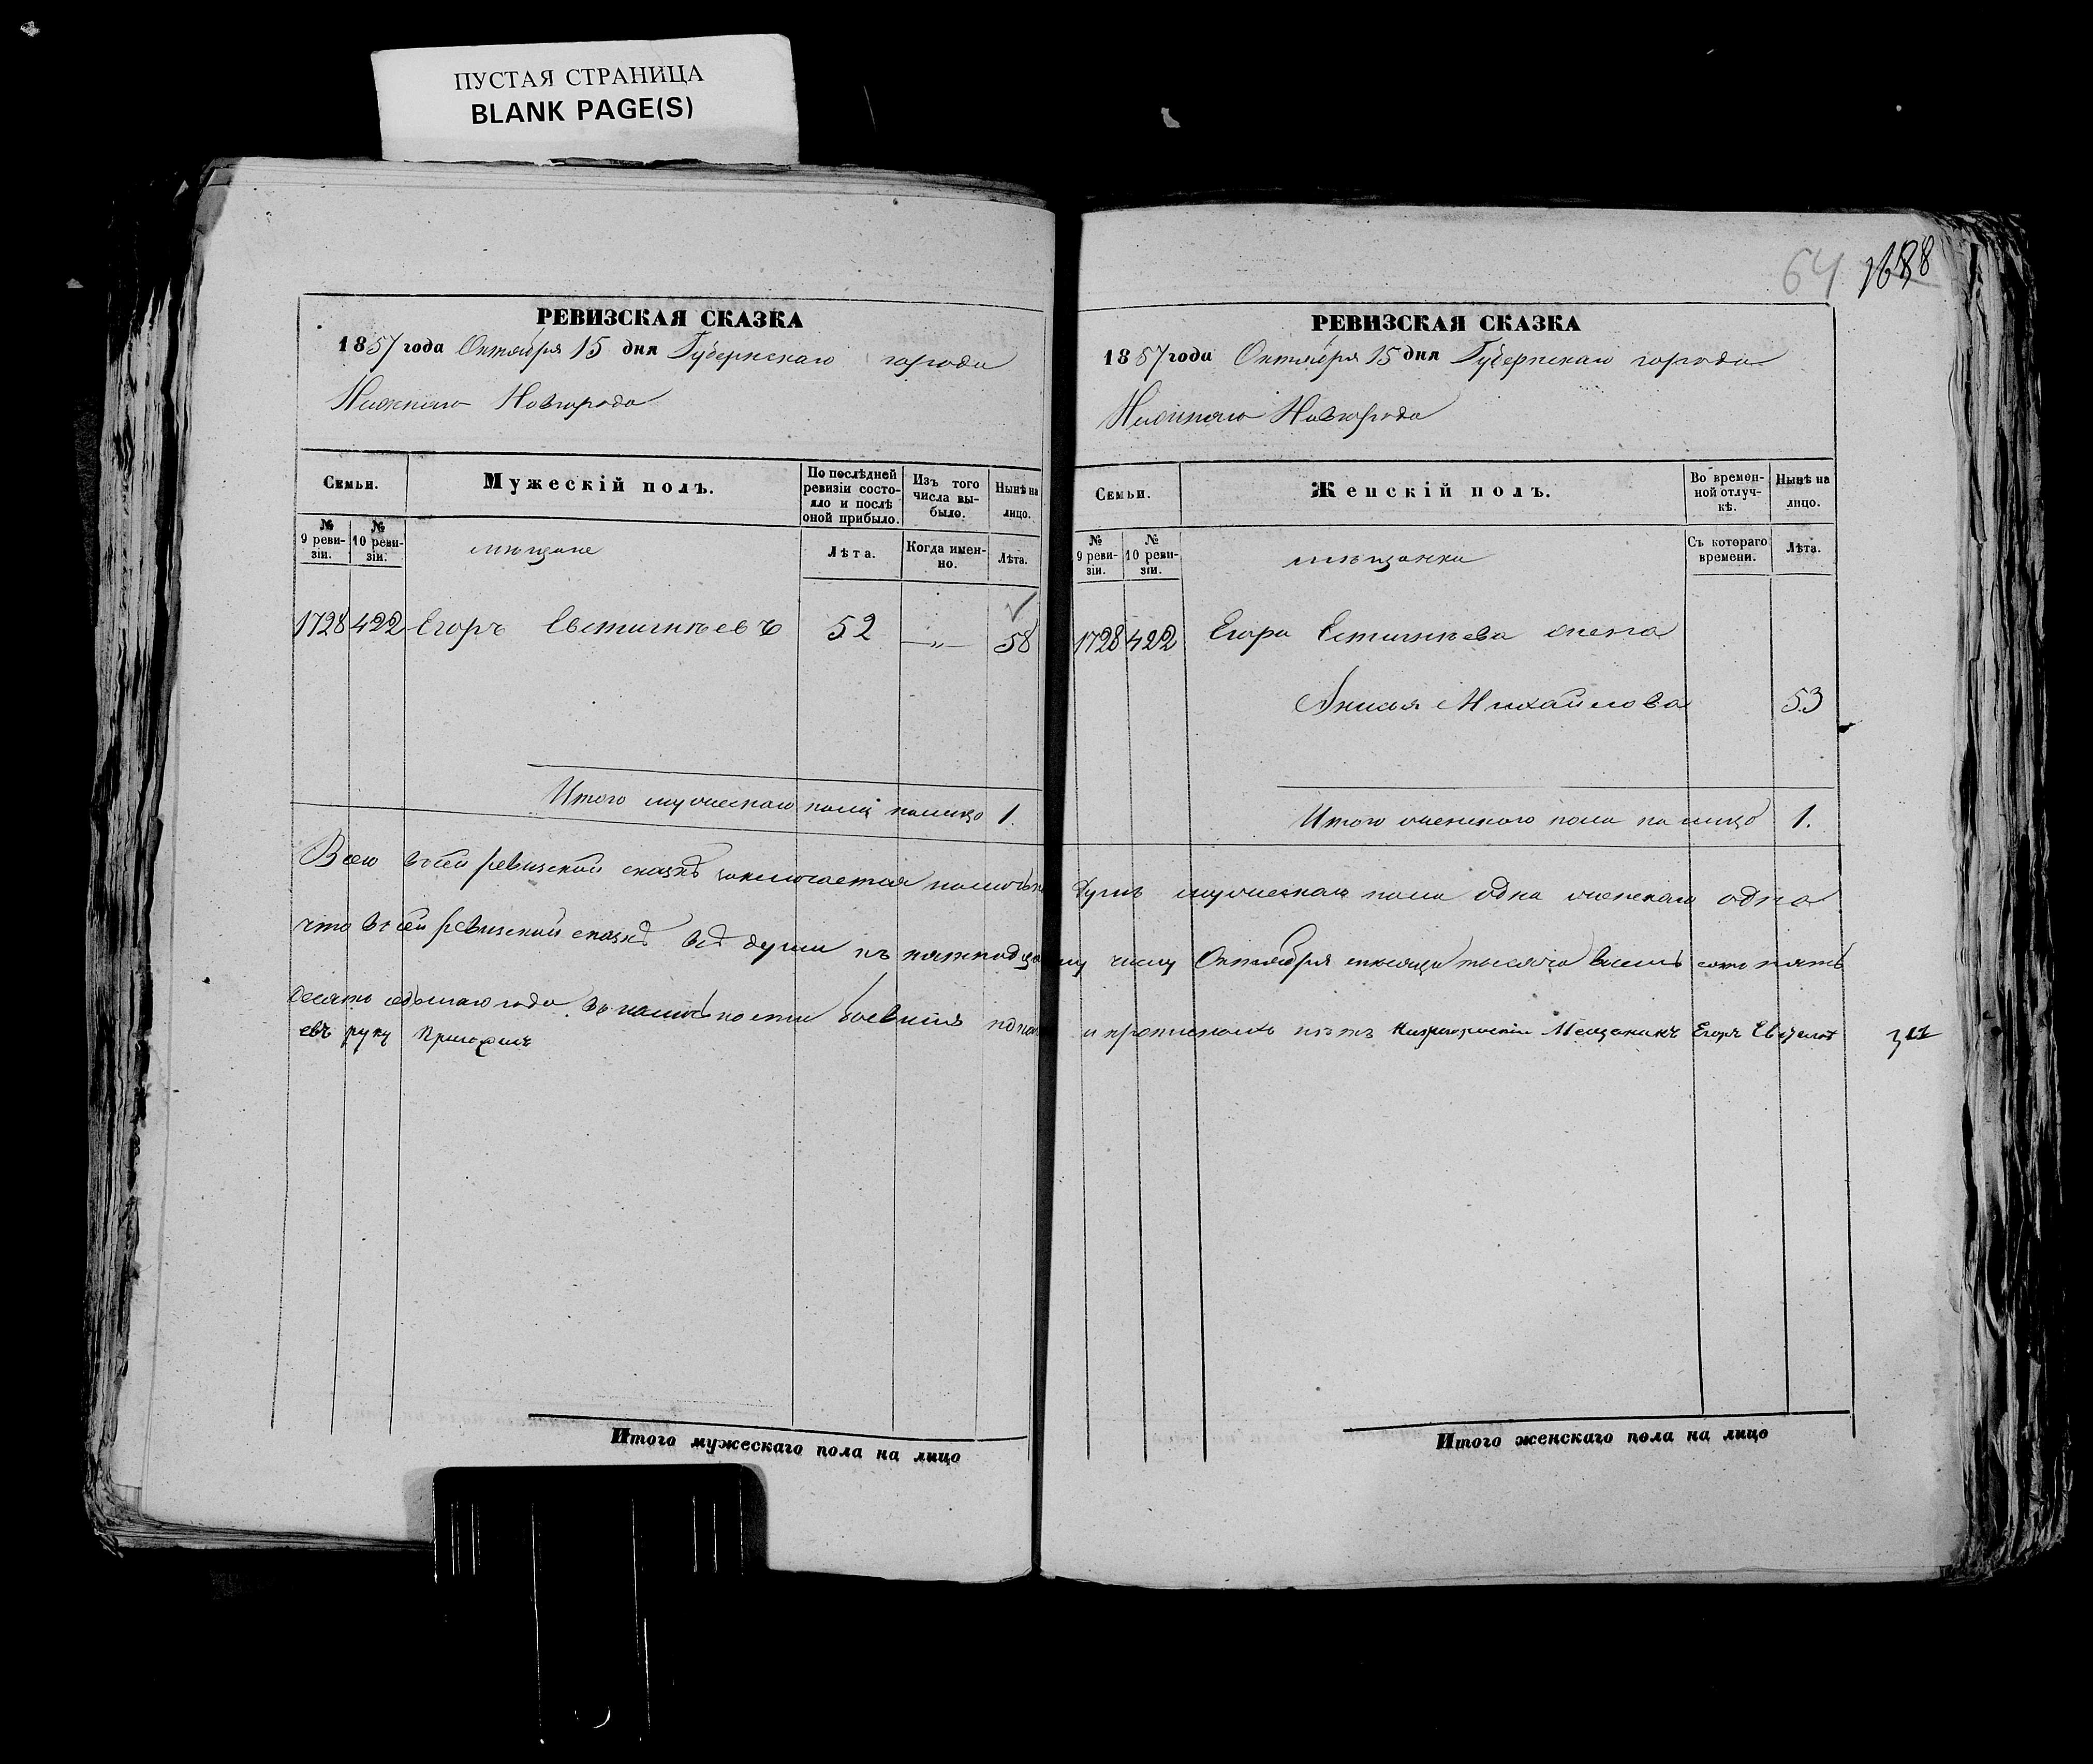 ПУСТАЯ СТРАНИЦА
BLANK PAGE(S)
РЕВИЗСКАЯ СКАЗКА
1857 года Октября 15 дня Губернскаго города
Нижняго Новгорода
Семьи.
Мужескій полъ.
По послѣдней ревизіи состояло и послѣ оной прибыло.
Изъ того числа выбыло.
Нынѣ на лицо.
№ 9 ревизіи.
№ 10 ревизіи.
мѣщане
Лѣта.
Когда именно.
Лѣта.
1728 422 Егоръ Евстигнѣевъ 52 —„— 58
Итого мужескаго пола налицо 1.
Всего въ сей ревизской сказкѣ заключается
что въ сей ревизской сказкѣ всѣ души къ
десятъ седьмаго года
евъ руку Приложилъ
Итого мужескаго пола на лицо
64 1688
РЕВИЗСКАЯ СКАЗКА
1857 года Октября 15 дня Губернскаго города
Нижняго Новгорода
Семьи.
Женскій полъ.
Во временной отлучкѣ.
Нынѣ на лицо.
№ 9 ревизіи.
№ 10 ревизіи.
мѣщанки
Съ котораго времени.
Лѣта.
1728 422 Егора Естигнѣева жена
Анисья Михайлова 53
Итого женскаго пола на лицо 1.
душъ мужескаго пола одна женскаго одна
числу Октября мѣсяца тысяча восемь сотъ пятъ
и прописныхъ нѣтъ Мещанинъ Егоръ
Итого женскаго пола на лицо